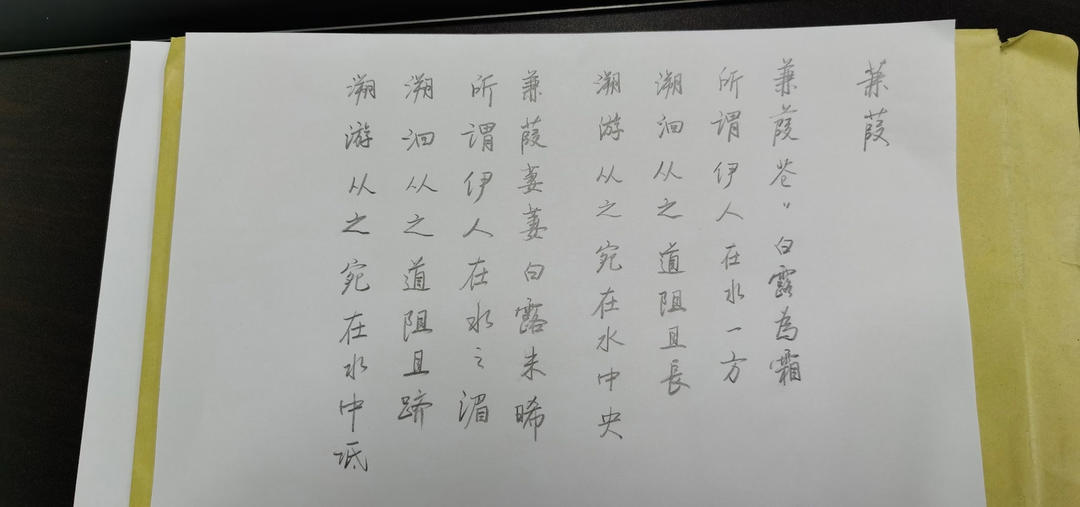 蒹葭
蒹葭苍〃白露為霜
所谓伊人在水一方
溯洄从之道阻且長
溯游从之宛在水中央
蒹葭萋萋白露未晞
所谓伊人在水之湄
溯洄从之道阻且跻
溯游从之宛在水中坻